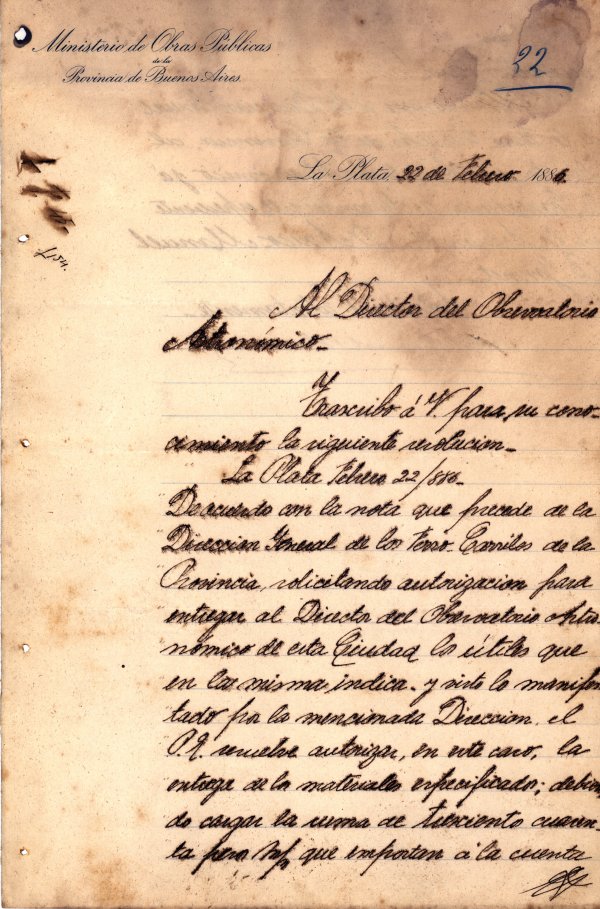 Ministerio de Obras Públicas
de la
Provincia de Buenos Aires.
22
La Plata, 22 de Febrero 1886.
Al Director del Observatorio
Astronómico.-
Trascribo á V. para su cono-
cimiento la siguiente resolucion.-
La Plata Febrero 22/886.
De acuerdo con la nota que precede de la
Direccion General de los Ferro-Carriles de la
Provincia, solicitando autorizacion para
entregar al Director del Observatorio Astro
nómico de esta Ciudad los útiles que
en la misma indica, y visto lo manifes-
tado por la mencionada Direccion, el
P.E. resuelve autorizar, en este caso, la
entrega de los materiales especificado; debien
do cargar la suma de trescientos cuaren-
ta pesos m/n que importan á la cuenta